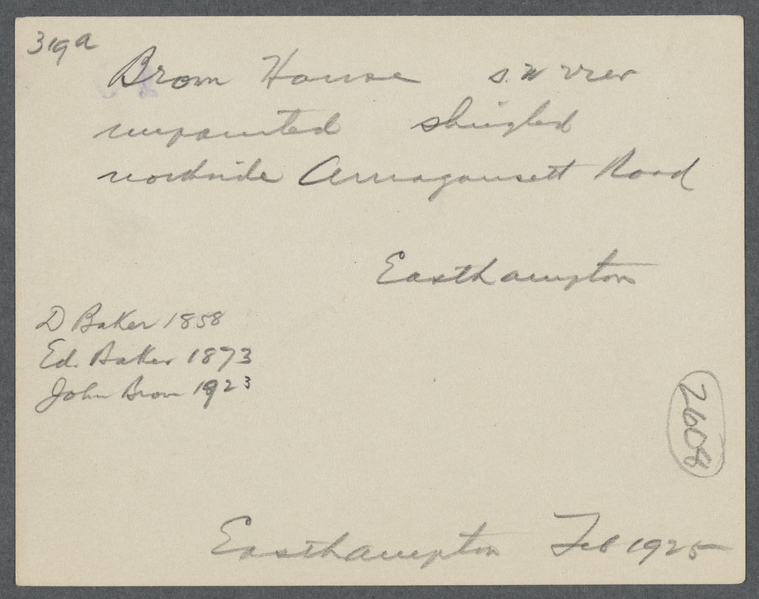 319a
Brom House s.w view
unpainted shingled
northside Amagansett Road
Easthampton
D Baker 1858
Ed. Baker 1873
John Brom 1923
2608
Easthampton Feb 1925